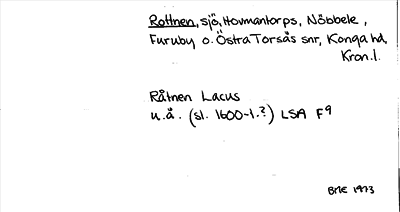 Rottnen, sjö, Hovmantorps, Nöbbele,
Furuby o. Östra Torsås snr, Konga hd,
Kron. l.
Råtnen Lacus
u.å. (sl. 1600-t.?) LSA F9
BME 1973